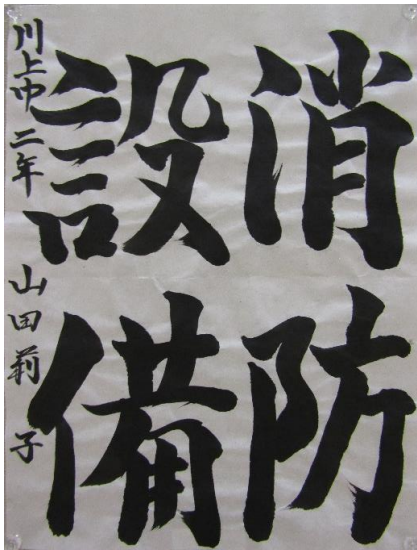 消防
設備
川上中二年 山田莉子